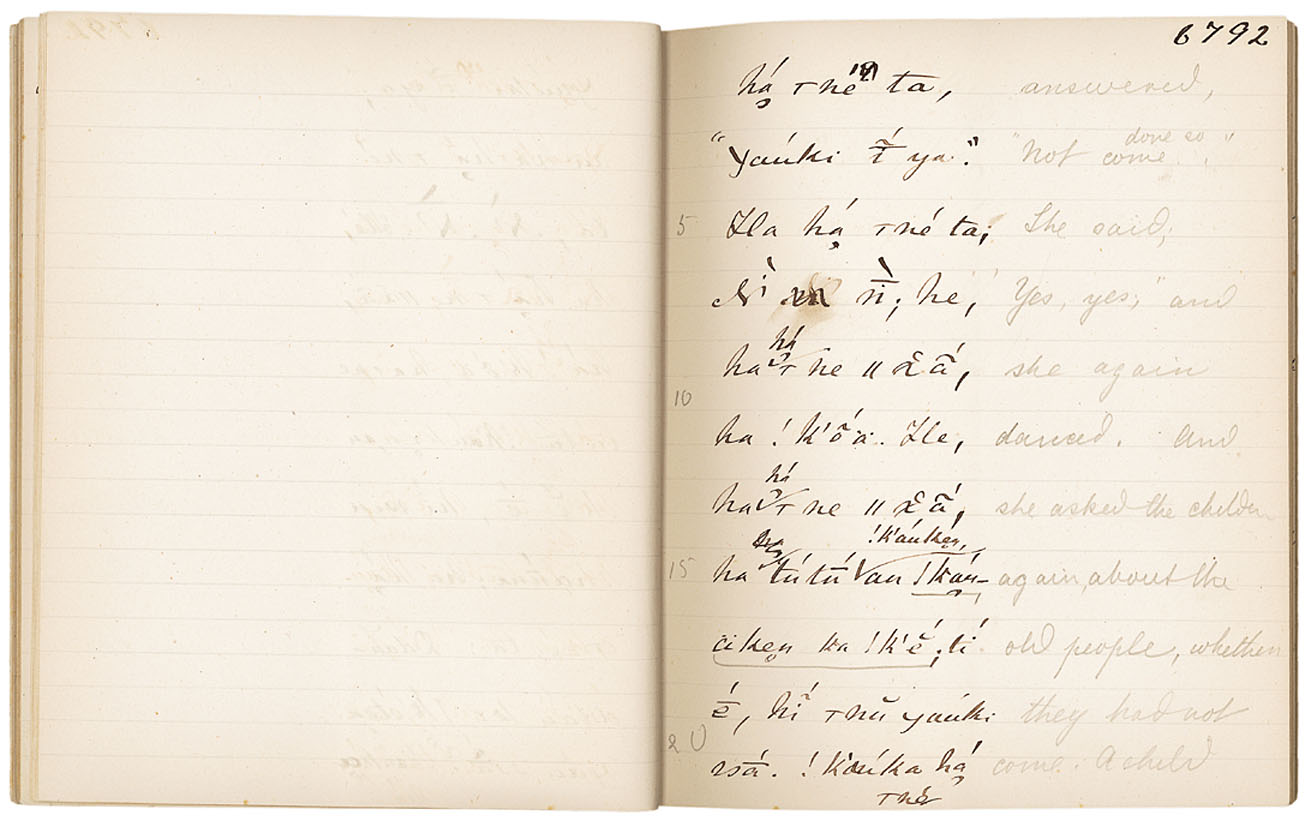 6792
há̦ ⊤né ta, answered,
"yaúki ī́ ya." "Not come done so."
5 Ha há̦ ⊤né ta; She said;
ň, he, Yes, yes;" and
há̦
ha ⊤ ne ǁx̆ā́, she again
10
ha !k'õ̌ä. He, danced. And
há̦
ha ⊤ ne ǁx̆ā́, she asked the children
!kaúke̦n,
15 ha tú̄tū́ au !kaú- again, about the
ci ke̦n ka !k'ĕ́, tí old people, whether
ḗ, hĩ́ ⊤nŭ yaúki they had not
20 ssā́. !k'aúka há̦ come. A child
⊤né